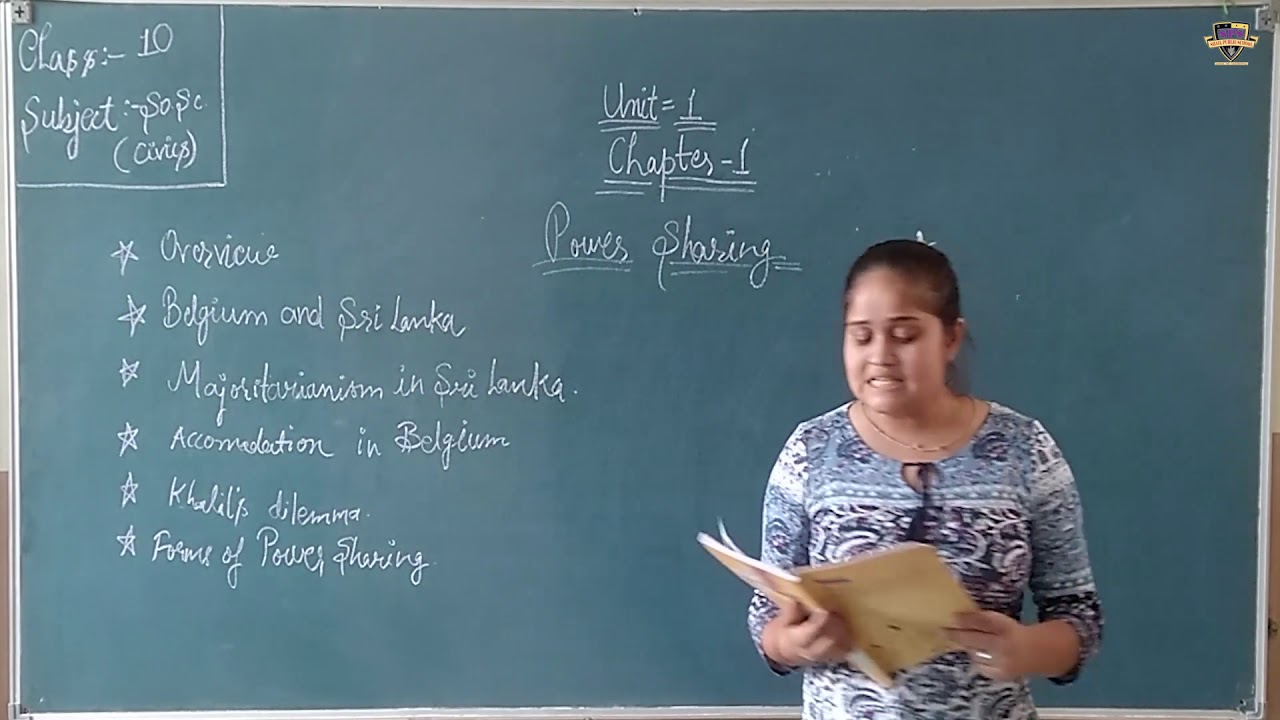 Class:- 10
Subject:- So.Sc
(Civics)
Unit = 1
Chapter - 1
Power Sharing
Overview
Belgium and Sri Lanka
Majoritarianism in Sri Lanka.
Accomodation in Belgium
Khalil's dilemma.
Forms of Power Sharing